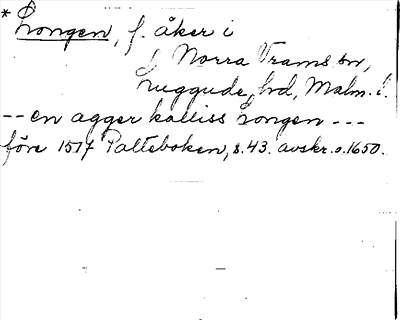 * Longen, f. åker i
f Norra Vrams sn,
Luggude hrd, Malm. l.
-- en agger kalliss longen ---
före 1517 Palteboken, s. 43. avskr. o. 1650.